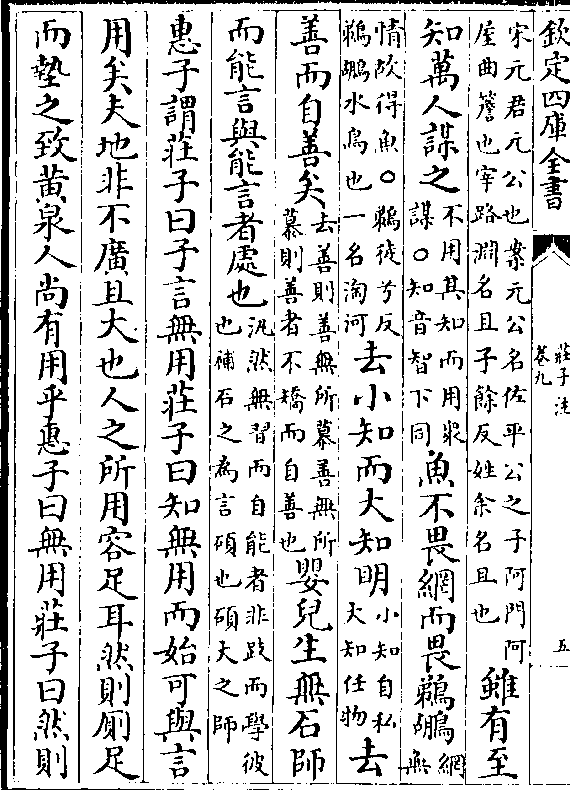 欽定四庫全書
莊子注
卷九
五
宋元君元公也案元公名佐平公之子阿門阿
屋曲簷也宰路淵名且子餘反姓余名且也
雖有至
知萬人謀之
不用其知而用衆
謀〇知音智下同
魚不畏網而畏鵜鶘
網無
情故得魚〇鵜徒兮反
鵜鶘水鳥也一名淘河
去小知而大知明
小知自私
大知任物
去
善而自善矣
去善則善無所慕善無所
慕則善者不矯而自善也
嬰兒生無石師
而能言與能言者處也
汎然無習而自能者非跂而學彼
也補石之為言碩也碩大之師
惠子謂莊子曰子言無用莊子曰知無用而始可與言
用矣夫地非不廣且大也人之所用容足耳然則厠足
而墊之致黃泉人尚有用乎惠子曰無用莊子曰然則